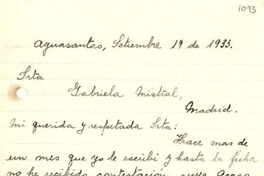 1093
Aguasantas, Setiembre 19 de 1933.
Srta
Gabriela Mistral,
Madrid.
Mi querida y respetada Srta:
Hace mas de
un mes que yo le escibí y hasta la fecha
no he recibido contestación suya. Acaso